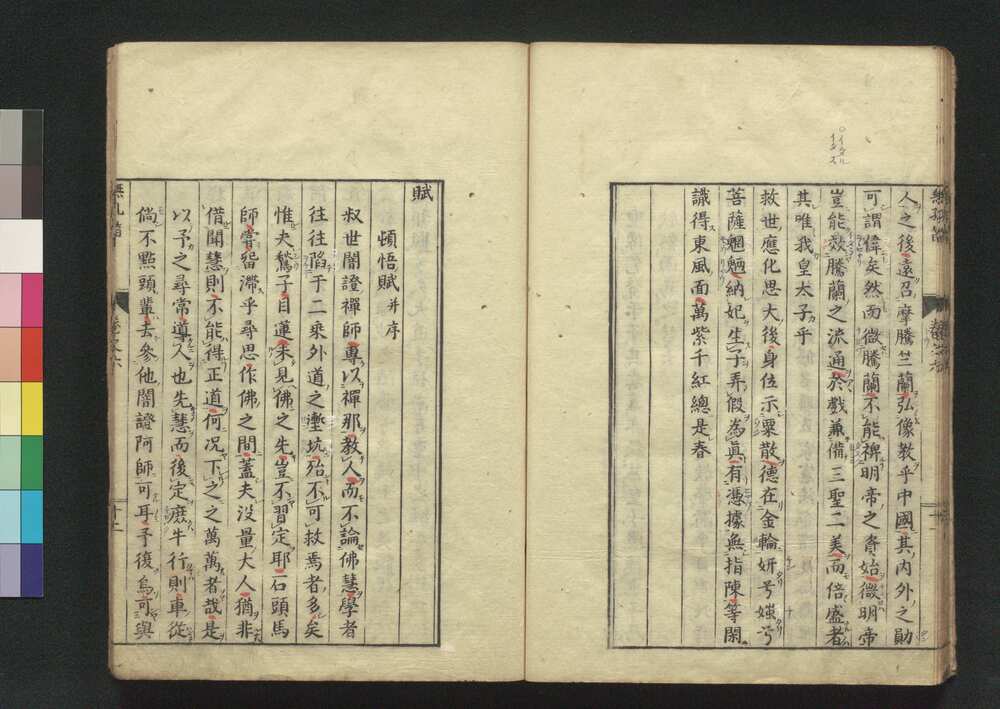 人之後遠召摩騰竺蘭弘像教乎中國其内外之勛
可謂偉矣然而微騰蘭不能裨明帝之資始微明帝
豈能效騰蘭之流通於戲兼備三聖二美而倍盛者
其唯我皇太子乎
救世應化思大後身位示粟散德在金輪妍兮媸兮
菩薩魍魎納妃生子弄假為真有憑據無指陳等閑
識得東風面萬紫千紅總是春
賦
頓悟賦并序
叔世闇證禪師專以禪那教人而不論佛慧學者
往往陷于二乘外道之壍坑殆不可救焉者多矣
惟夫鶖子目蓮未見佛之先豈不習定耶石頭馬
師嘗留滯乎尋思作佛之間蓋夫没量大人猶非
借聞慧則不能得正道何况下之之萬萬者哉是
以予之尋常導人也先慧而後定麽牛行則車從
倘不點頭輩去參他闇證阿師可耳予復烏可與